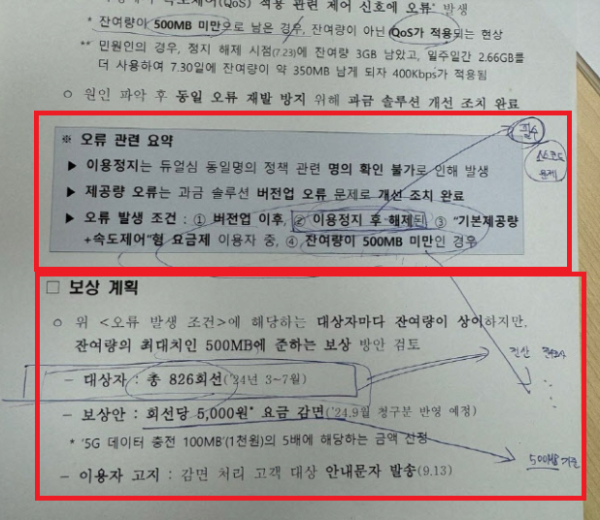 속도제어(QoS) 적용 관련 제어 신호에 오류* 발생
* 잔여량이 500MB 미만으로 남은 경우, 잔여량이 아닌 QoS가 적용되는 현상
** 민원인의 경우, 정지 해제 시점(7.23)에 잔여량 3GB 남았고, 일주일간 2.66GB를
더 사용하여 7.30일에 잔여량이 약 350MB 남게 되자 400Kbps가 적용됨
○ 원인 파악 후 동일 오류 재발 방지 위해 과금 솔루션 개선 조치 완료
※ 오류 관련 요약
▶ 이용정지는 듀얼심 동일명의 정책 관련 명의 확인 불가로 인해 발생
▶ 제공량 오류는 과금 솔루션 버전업 오류 문제로 개선 조치 완료
▶ 오류 발생 조건 : ① 버전업 이후, ② 이용정지 후 해제된 ③ "기본제공량
+속도제어"형 요금제 이용자 중, ④ 잔여량이 500MB 미만인 경우
필수
□ 보상 계획
○ 위 <오류 발생 조건>에 해당하는 대상자마다 잔여량이 상이하지만,
잔여량의 최대치인 500MB에 준하는 보상 방안 검토
- 대상자 : 총 826회선('24년 3~7월)
- 보상안 : 회선당 5,000원* 요금 감면('24.9월 청구분 반영 예정)
* '5G 데이터 충전 100MB'(1천원)의 5배에 해당하는 금액 산정
- 이용자 고지 : 감면 처리 고객 대상 안내문자 발송(9.13)